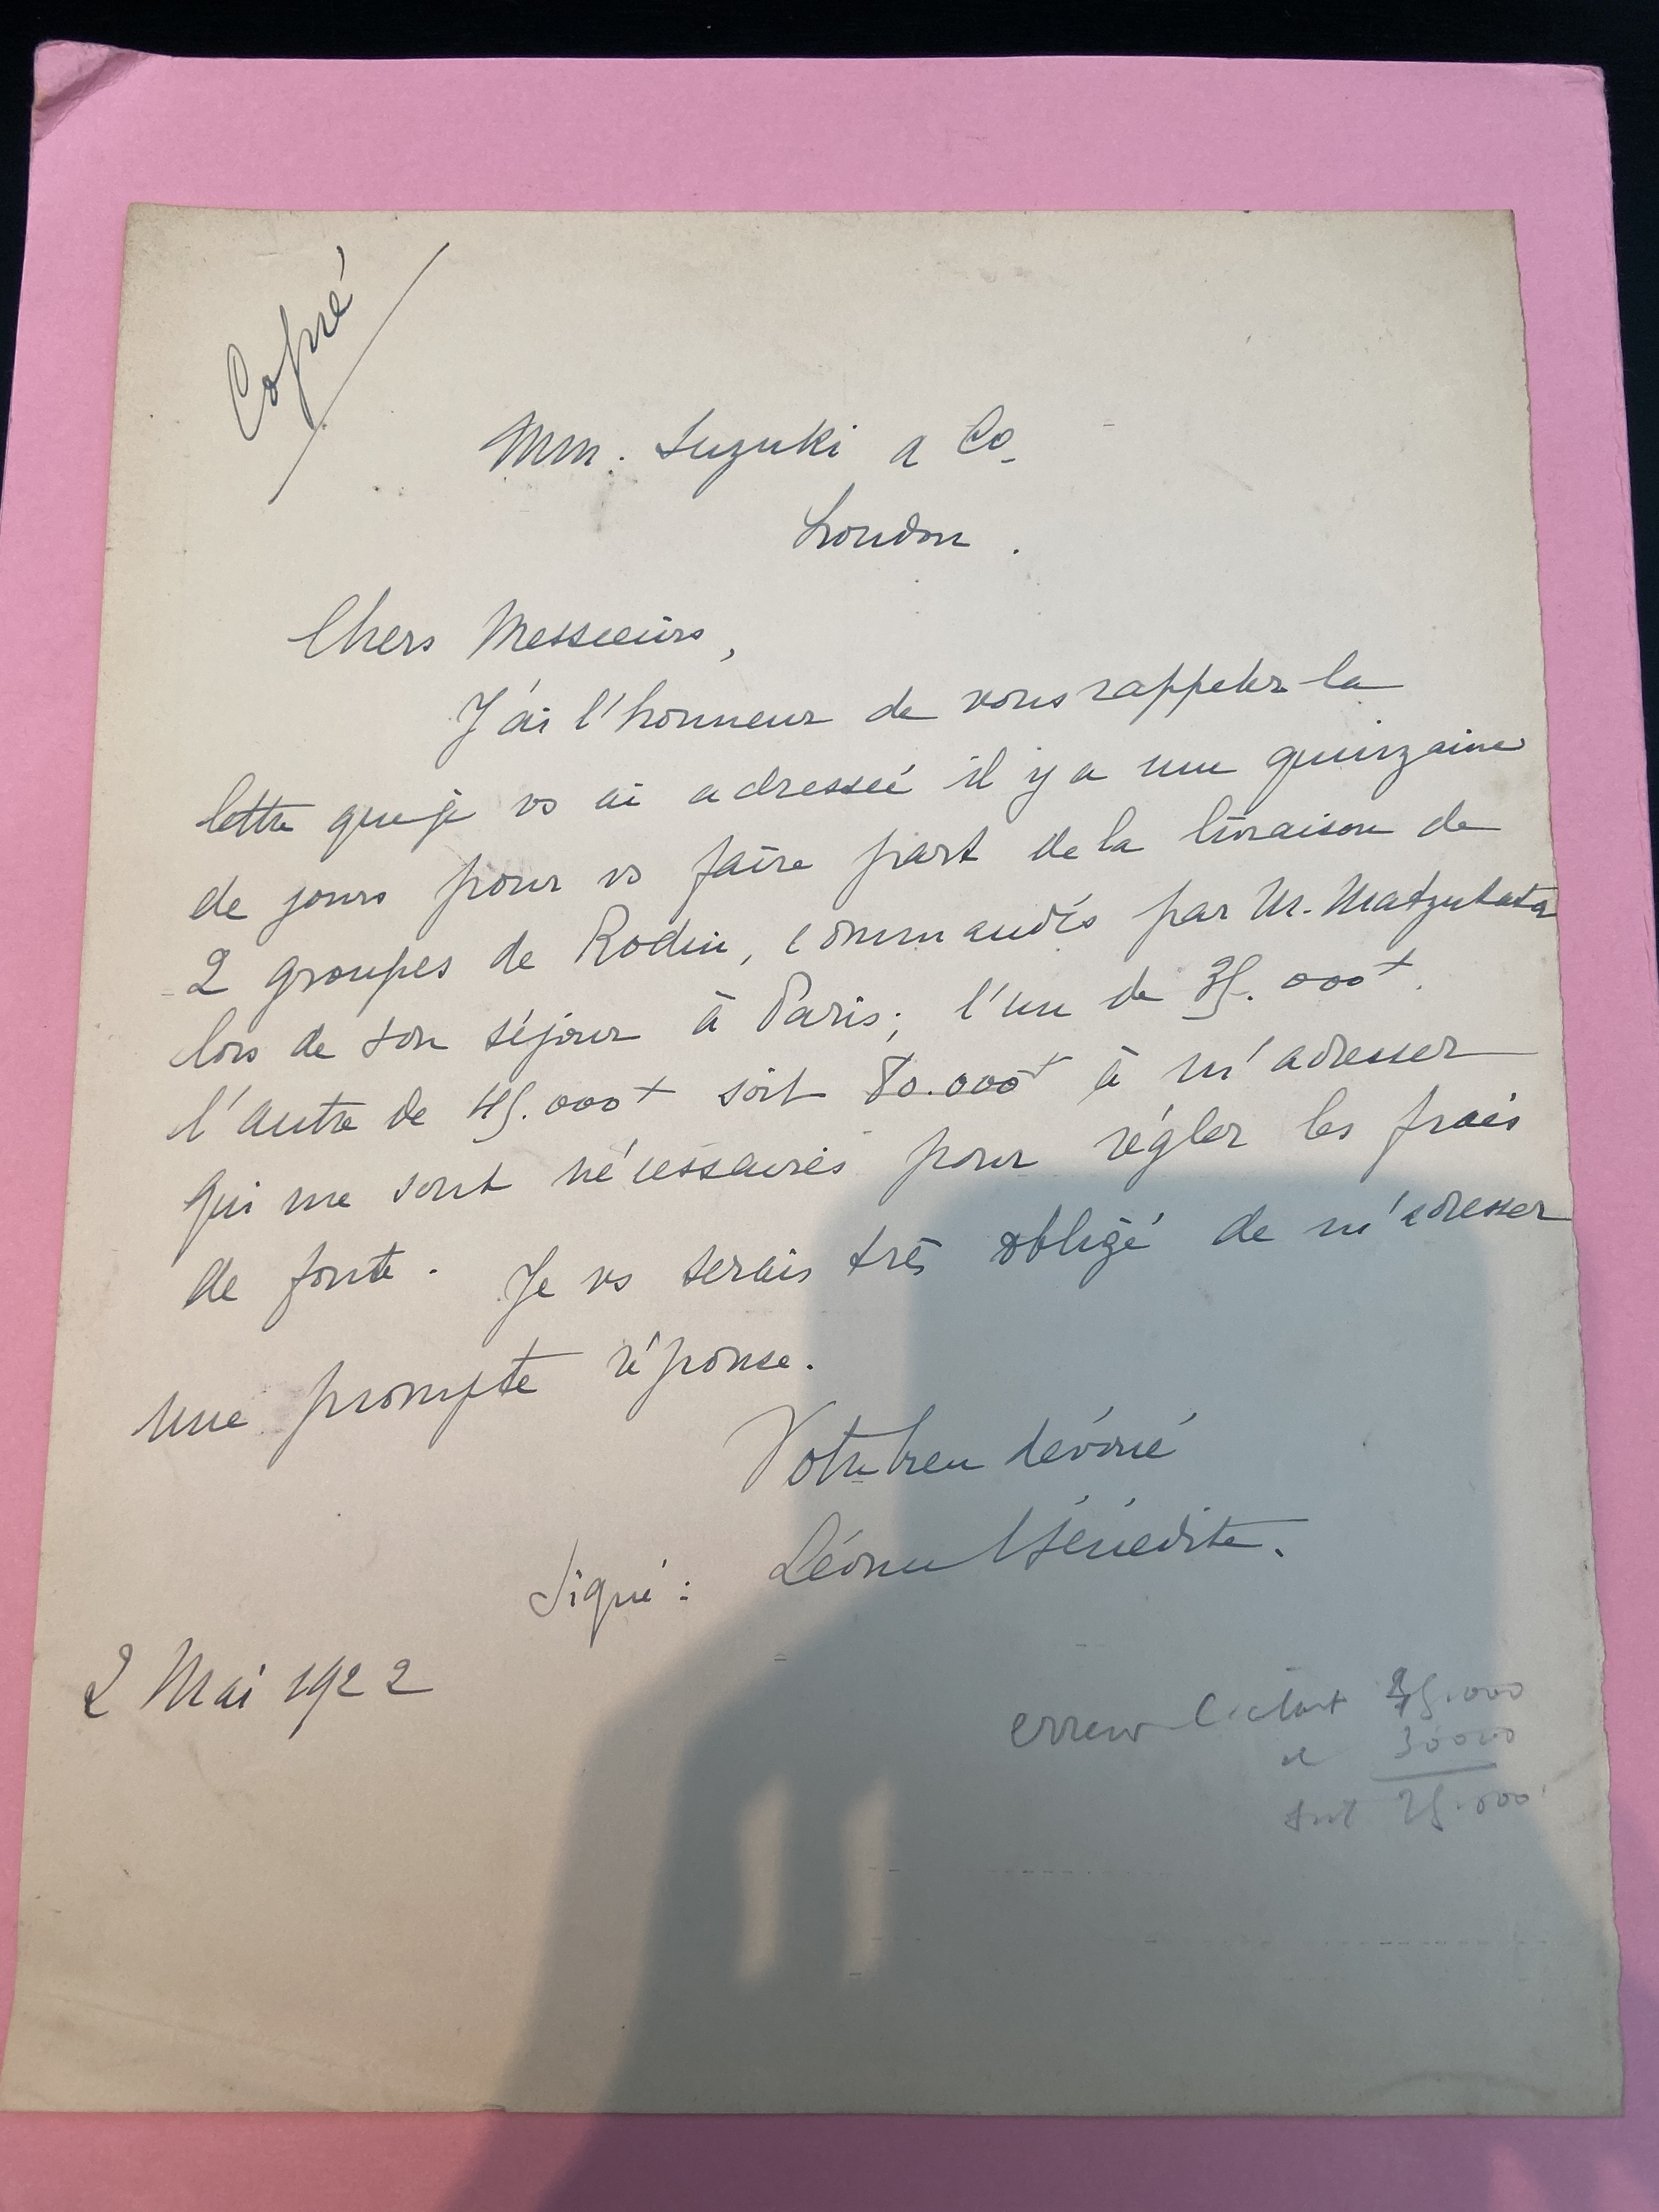 Copié
Mm. Suzuki a Co.
London.
Chers Messieurs,
J'ai l'honneur de vous rappeler la
lettre que je vs ai adressée il y a une quinzaine
de jours pour vs faire part de la livraison de
2 groupes de Rodin, commandés par M. Matzukata
lors de son séjour à Paris; l'un de 35.000f.
l'autre de 45.000f soit 80.000f à m'adresser
qui me sont nécessaires pour régler les frais
de fonte. Je vs serais très obligé de m'adresser
une prompte réponse.
Votre bien dévoué
Signé: Léonce Bénédite.
2 Mai 1922
erreur c'était 45.000
et 30000
soit 75.000